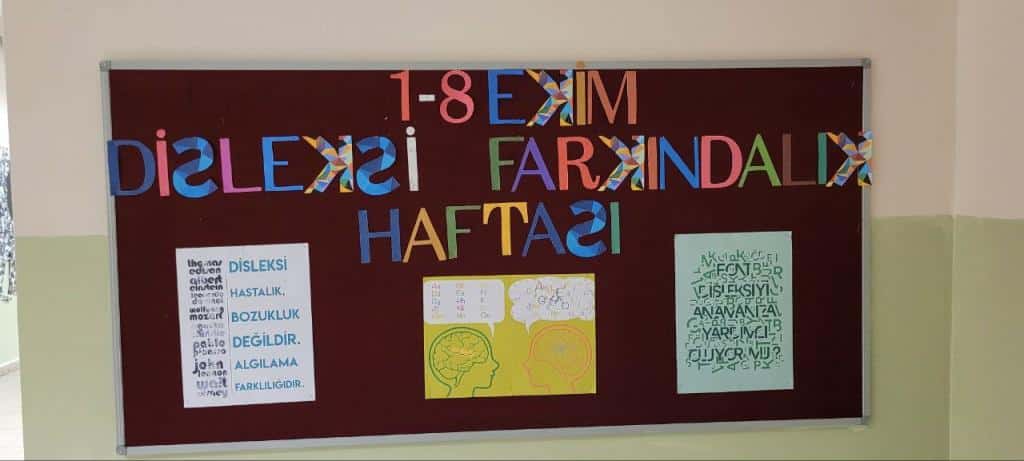 1-8 EKİM
DİSLEKSİ FARKINDALIK
HAFTASI
thomas
edison
albert
einstein
wolfgang
mozart
pablo
picasso
john
lennon
walt
disney
DİSLEKSİ
HASTALIK,
BOZUKLUK
DEĞİLDİR.
ALGILAMA
FARKLILIĞIDIR.
FONT
DİSLEKSİYİ
YARDIMCI
OLUYOR MU?